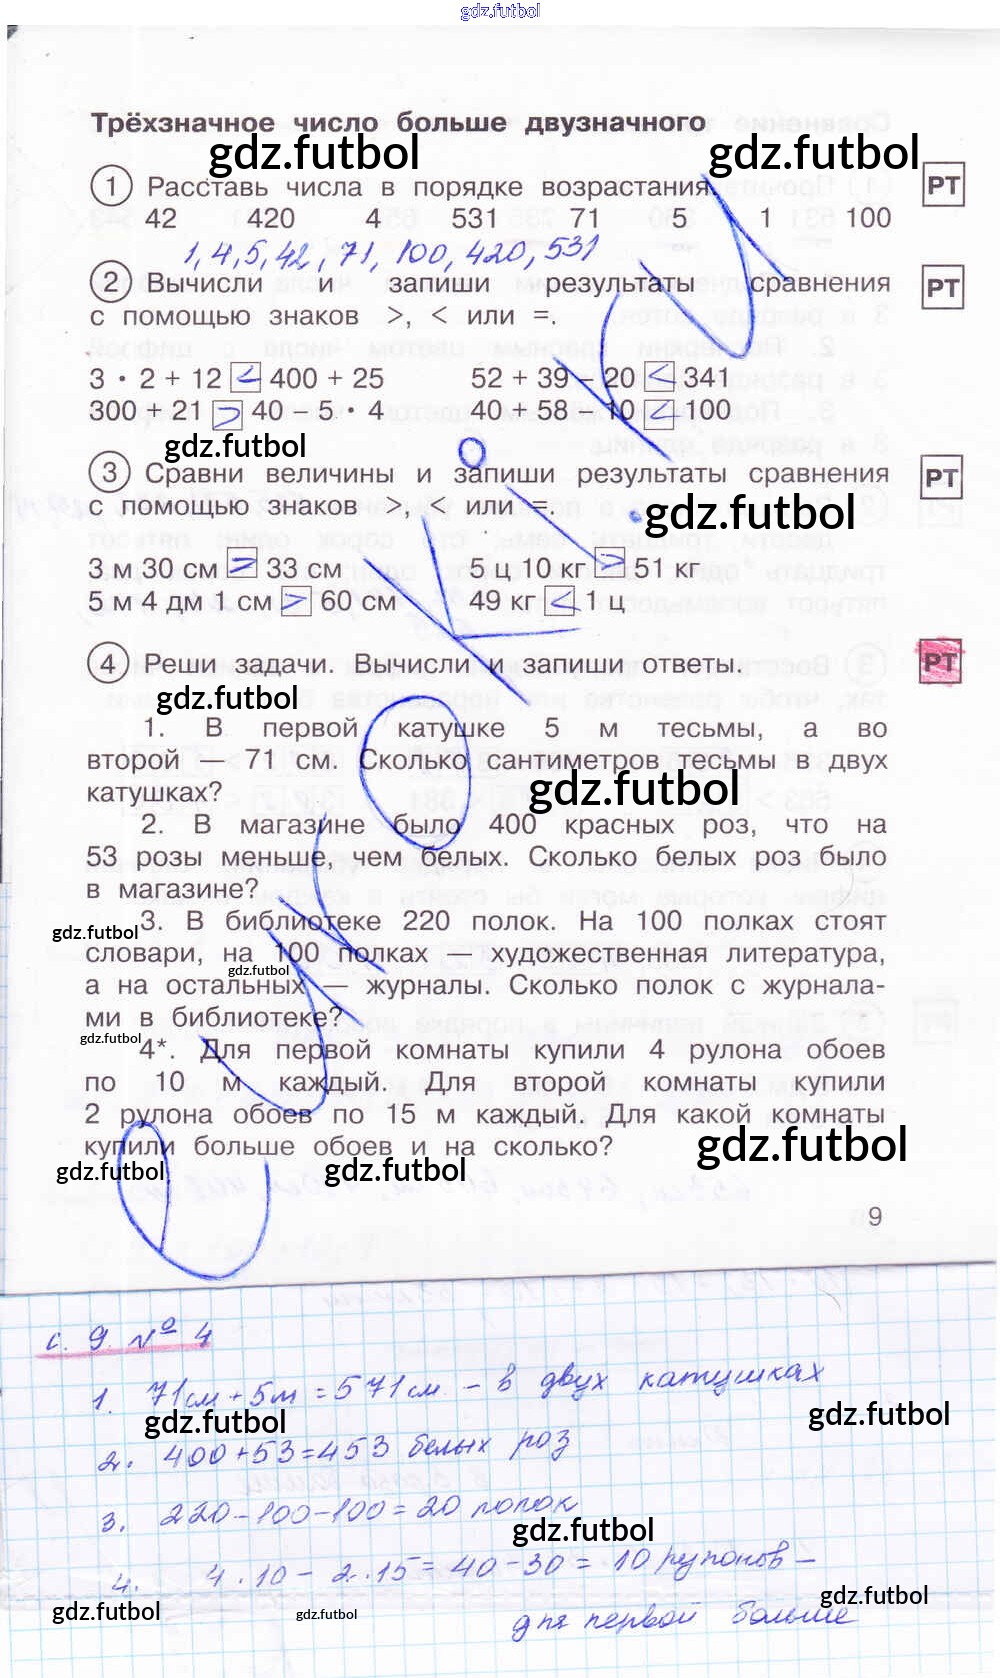 gdz.futbol
Трёхзначное число больше двузначного
gdz.futbol gdz.futbol
1 Расставь числа в порядке возрастания. РТ
42 420 4 531 71 5 1 100
1, 4, 5, 42, 71, 100, 420, 531
2 Вычисли и запиши результаты сравнения РТ
с помощью знаков >, < или =.
3 · 2 + 12 < 400 + 25 52 + 39 – 20 < 341
300 + 21 > 40 – 5 · 4 40 + 58 – 10 < 100
gdz.futbol
3 Сравни величины и запиши результаты сравнения РТ
с помощью знаков >, < или =.
gdz.futbol
3 м 30 см > 33 см 5 ц 10 кг > 51 кг
5 м 4 дм 1 см > 60 см 49 кг < 1 ц
4 Реши задачи. Вычисли и запиши ответы. РТ
gdz.futbol
1. В первой катушке 5 м тесьмы, а во
второй — 71 см. Сколько сантиметров тесьмы в двух
катушках?
gdz.futbol
2. В магазине было 400 красных роз, что на
53 розы меньше, чем белых. Сколько белых роз было
в магазине?
3. В библиотеке 220 полок. На 100 полках стоят
gdz.futbol
словари, на 100 полках — художественная литература,
gdz.futbol
а на остальных — журналы. Сколько полок с журнала-
ми в библиотеке?
gdz.futbol
4*. Для первой комнаты купили 4 рулона обоев
по 10 м каждый. Для второй комнаты купили
2 рулона обоев по 15 м каждый. Для какой комнаты
купили больше обоев и на сколько?
gdz.futbol gdz.futbol gdz.futbol
9
с. 9 № 4
1. 71см + 5м = 571см – в двух катушках
gdz.futbol gdz.futbol
2. 400 + 53 = 453 белых роз
3. 220 – 100 – 100 = 20 полок
gdz.futbol
4. 4 · 10 – 2 · 15 = 40 – 30 = 10 рулонов –
gdz.futbol gdz.futbol gdz.futbol
для первой больше